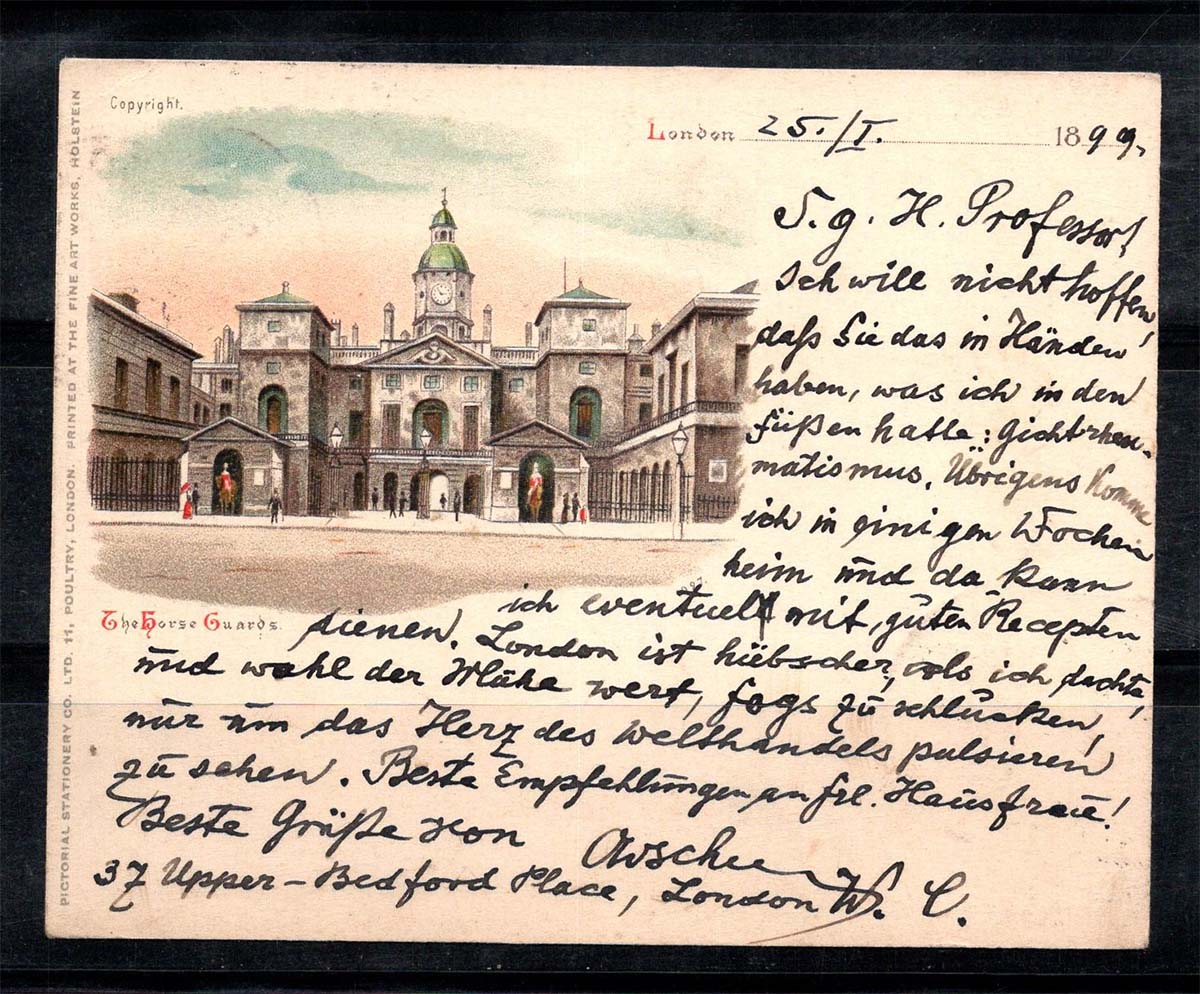 Copyright.
London 25./I. 1899.
S. g. H. Professor!
Ich will nicht hoffen,
daß Sie das in Händen
haben, was ich in den
Füßen hatte: Gichtrheu-
matismus. Übrigens komme
ich in einigen Wochen
heim und da kann
ich eventuell mit guten Recepten
dienen. London ist hübscher, als ich dachte,
und wohl der Mühe wert, fogs zu schlucken,
nur um das Herz des Welthandels pulsieren
zu sehen. Beste Empfehlungen an frl. Hausfrau!
Beste Grüße von
37 Upper-Bedford Place, London W. C.
The Horse Guards.
PICTORIAL STATIONERY CO. LTD. 11, POULTRY, LONDON. PRINTED AT THE FINE ART WORKS, HOLSTEIN